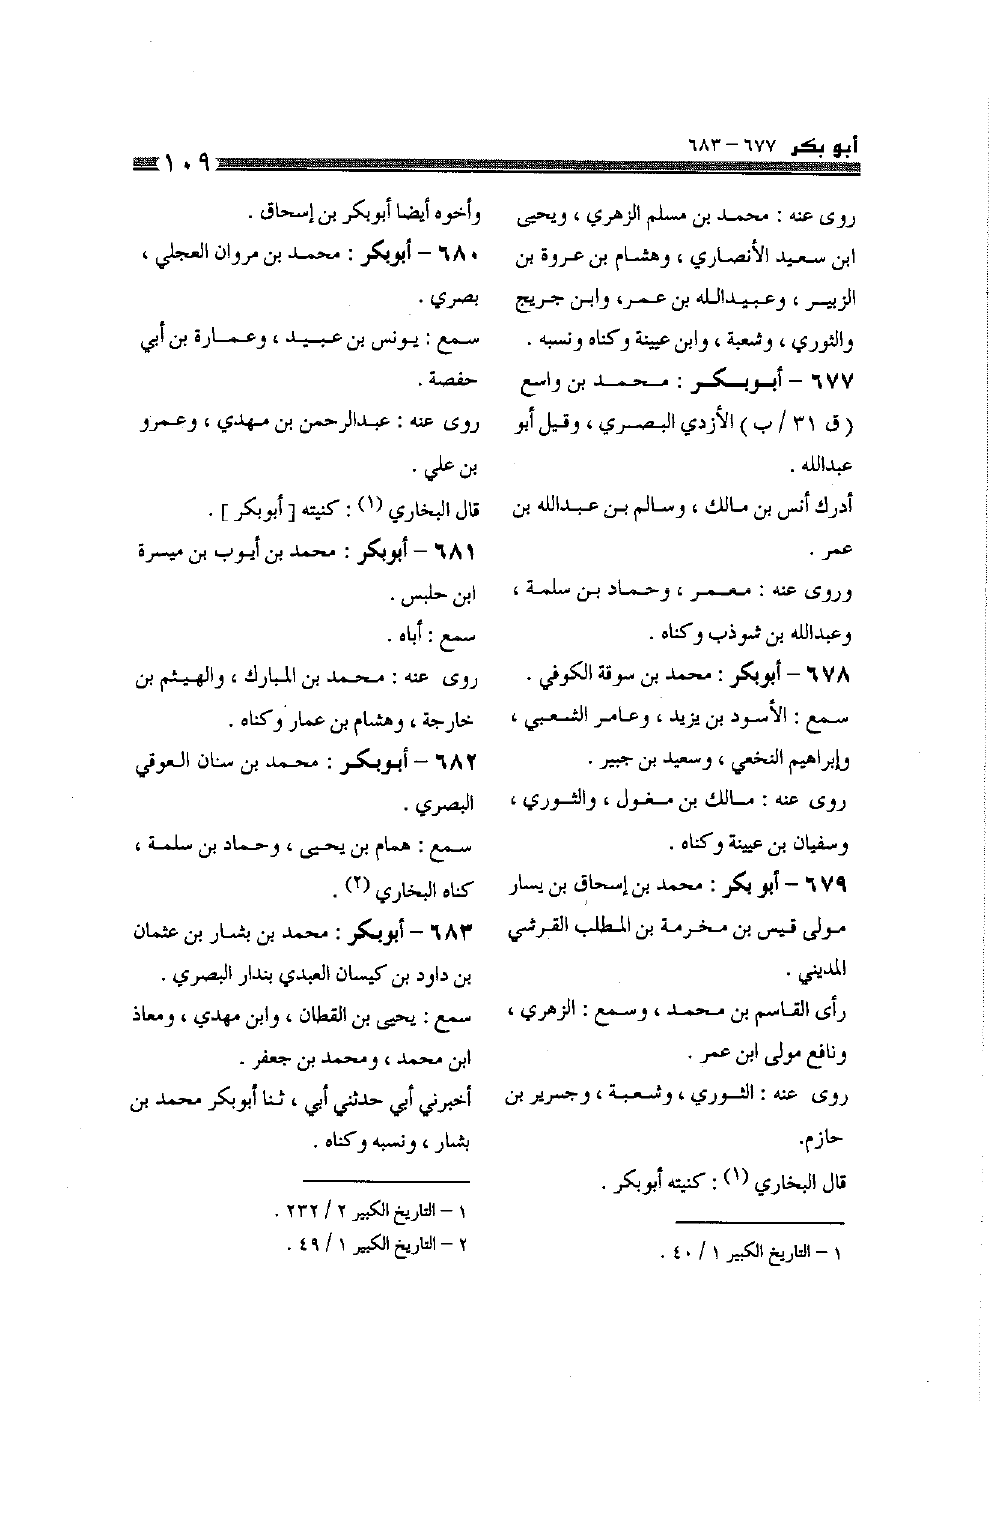 أبو بكر ٦٧٧ – ٦٨٣
١٠٩
روى عنه : محمد بن مسلم الزهري ، ويحيى
ابن سعيد الأنصاري ، وهشام بن عروة بن
الزبير ، وعبيدالله بن عمر، وابن جريج
والثوري ، وشعبة ، وابن عيينة وكناه ونسبه .
٦٧٧ – أبوبكر : محمد بن واسع
( ق ٣١ / ب ) الأزدي البصري ، وقيل أبو
عبدالله .
أدرك أنس بن مالك ، وسالم بن عبدالله بن
عمر .
وروى عنه : معمر ، وحماد بن سلمة ،
وعبدالله بن شوذب وكناه .
٦٧٨ – أبوبكر : محمد بن سوقة الكوفي .
سمع : الأسود بن يزيد ، وعامر الشعبي ،
وإبراهيم النخعي ، وسعيد بن جبير .
روى عنه : مالك بن مغول ، والثوري ،
وسفيان بن عيينة وكناه .
٦٧٩ – أبو بكر : محمد بن إسحاق بن يسار
مولى قيس بن مخرمة بن المطلب القرشي
المديني .
رأى القاسم بن محمد ، وسمع : الزهري ،
ونافع مولى ابن عمر .
روى عنه : الثوري ، وشعبة ، وجرير بن
حازم.
قال البخاري (١) : كنيته أبوبكر .
١ – التاريخ الكبير ١ / ٤٠ .
وأخوه أيضا أبوبكر بن إسحاق .
٦٨٠ – أبوبكر : محمد بن مروان العجلي ،
بصري .
سمع : يونس بن عبيد ، وعمارة بن أبي
حفصة .
روى عنه : عبدالرحمن بن مهدي ، وعمرو
بن علي .
قال البخاري (١) : كنيته [ أبوبكر ] .
٦٨١ – أبوبكر : محمد بن أيوب بن ميسرة
ابن حلبس .
سمع : أباه .
روى عنه : محمد بن المبارك ، والهيثم بن
خارجة ، وهشام بن عمار وكناه .
٦٨٢ – أبوبكر : محمد بن سنان العوقي
البصري .
سمع : همام بن يحيى ، وحماد بن سلمة ،
كناه البخاري (٢) .
٦٨٣ – أبوبكر : محمد بن بشار بن عثمان
بن داود بن كيسان العبدي بندار البصري .
سمع : يحيى بن القطان ، وابن مهدي ، ومعاذ
ابن محمد ، ومحمد بن جعفر .
أخبرني أبي حدثني أبي ، ثنا أبوبكر محمد بن
بشار ، ونسبه وكناه .
١ – التاريخ الكبير ٢ / ٢٣٢ .
٢ – التاريخ الكبير ١ / ٤٩ .